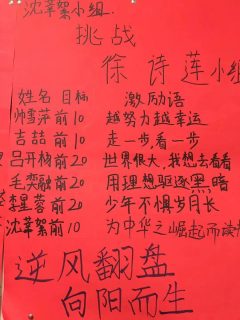 沈莘絮小组.
挑战
徐诗莲小组
姓名 目标 激励语
帅雪萍前10 越努力越幸运
吉喆 前10 走一步,看一步
吕开杨前20 世界很大,我想去看看
毛奕融前20 用理想驱逐黑暗
李星蓉前20 少年不惧岁月长
沈莘絮前10 为中华之崛起而读
逆风翻盘
向阳而生